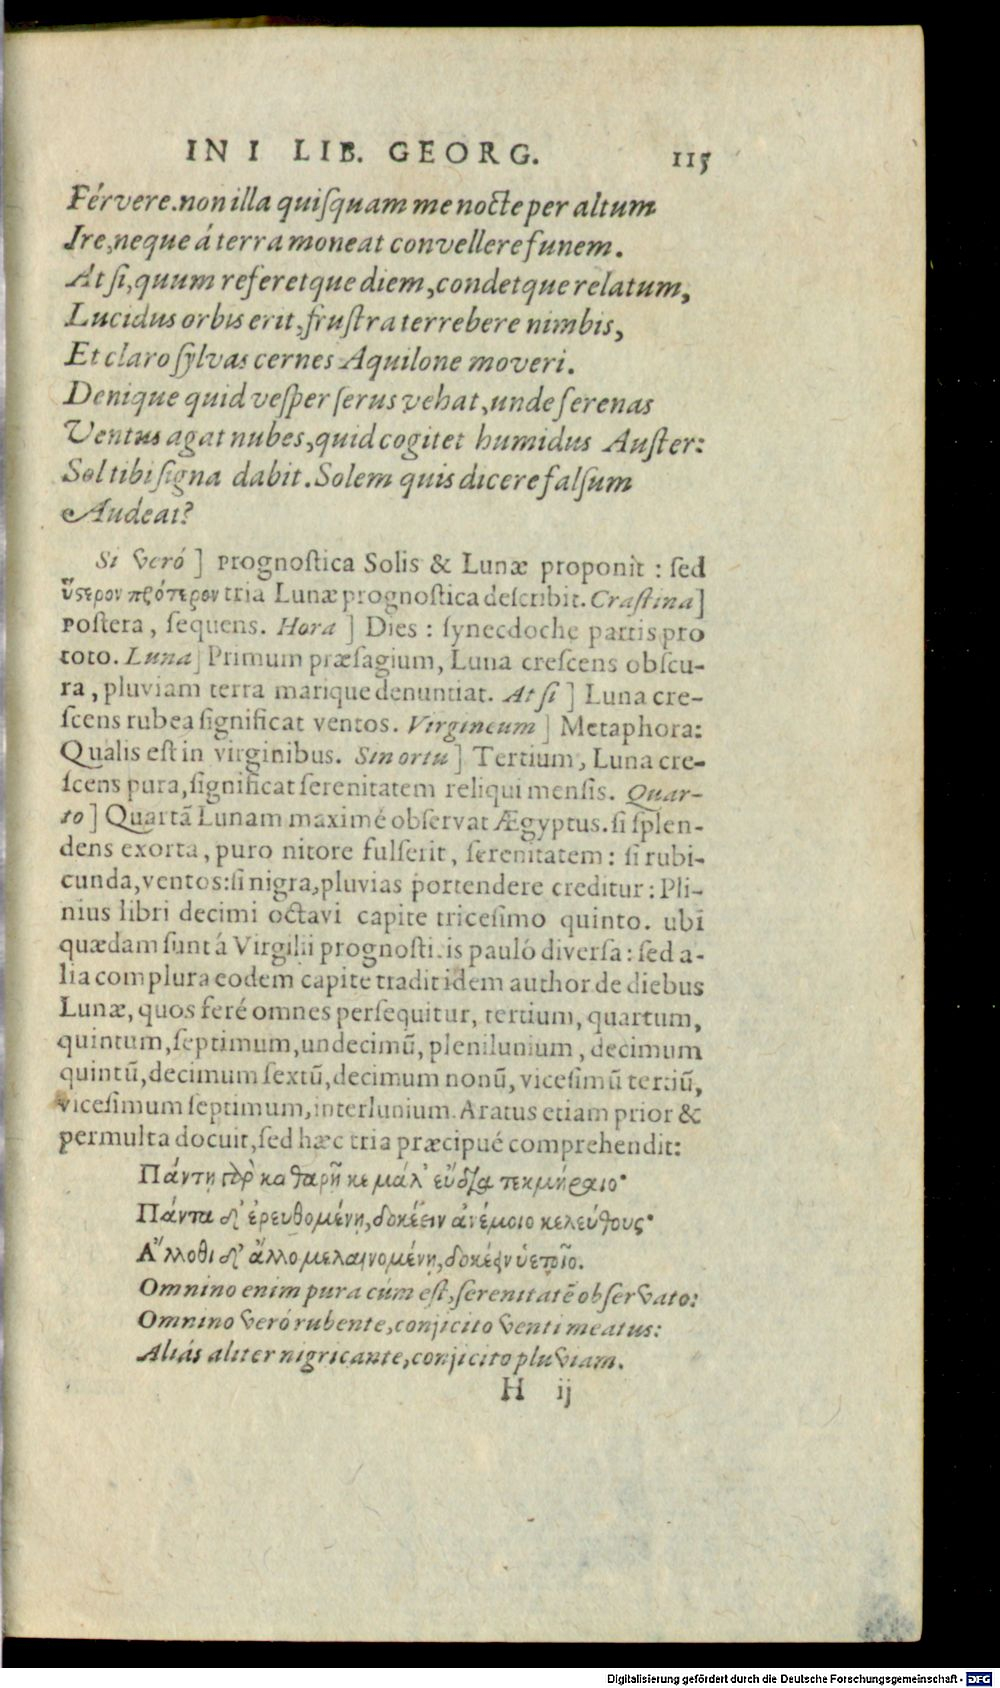 IN I LIB. GEORG. 115
Férvere. non illa quisquam me nocte per altum
Ire, neque á terra moneat convellere funem.
At si, quum referetque diem, condetque relatum,
Lucidus orbis erit, frustra terrebere nimbis,
Et claro sylvas cernes Aquilone moveri.
Denique quid vesper serus vehat, unde serenas
Ventus agat nubes, quid cogitet humidus Auster:
Sol tibi signa dabit. Solem quis dicere falsum
Audeat?
Si veró ] Prognostica Solis & Lunæ proponit : sed
ὕστερον πρότερον tria Lunæ prognostica describit. Crastina ]
Postera, sequens. Hora ] Dies : synecdoche partis pro
toto. Luna ] Primum præsagium, Luna crescens obscu-
ra, pluviam terra marique denuntiat. At si ] Luna cre-
scens rubea significat ventos. Virgineum ] Metaphora:
Qualis est in virginibus. Sin ortu ] Tertium, Luna cre-
scens pura, significat serenitatem reliqui mensis. Quar-
to ] Quartā Lunam maximé observat Ægyptus. si splen-
dens exorta, puro nitore fulserit, serenitatem : si rubi-
cunda, ventos: si nigra, pluvias portendere creditur : Pli-
nius libri decimi octavi capite tricesimo quinto. ubi
quædam sunt á Virgilii prognosti.is pauló diversa : sed a-
lia complura eodem capite tradit idem author de diebus
Lunæ, quos feré omnes persequitur, tertium, quartum,
quintum, septimum, undecimū, plenilunium, decimum
quintū, decimum sextū, decimum nonū, vicesimū tertiū,
vicesimum septimum, interlunium. Aratus etiam prior &
permulta docuit, sed hæc tria præcipué comprehendit:
Πάντη γὰρ καθαρῇ κε μάλ᾽ εὔδια τεκμήραιο·
Πάντα δ᾽ ἐρευθομένη, δοκέειν ἀνέμοιο κελεύθους·
Ἄλλοθι δ᾽ ἄλλο μελαινομένη, δοκέειν ὑετοῖο.
Omnino enim pura cúm est, serenitatē observato:
Omnino veró rubente, conjicito venti meatus:
Aliás aliter nigricante, conjicito pluviam.
H ij
Digitalisierung gefördert durch die Deutsche Forschungsgemeinschaft - DFG